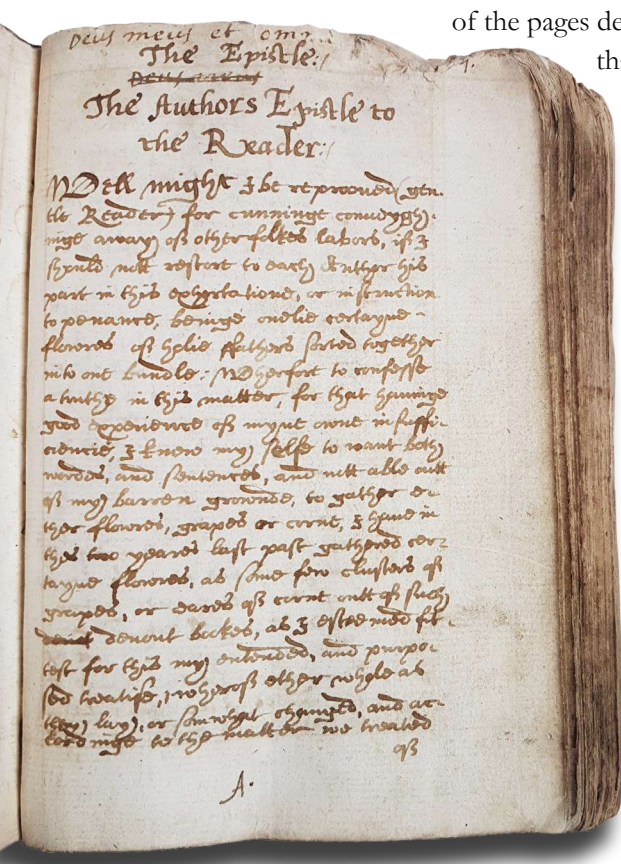 of the pages de
tha
Deus meus et omn
The Epistle:/
The Authors Epistle to
the Reader:/
Well might I be reprooued (gen-
tle Reader) for cunninge conuoygh-
inge away of other folkes labors, if I
should nott restore to each Author his
part in this exhortatione, or instruction
to penance, beinge onelie certayne
floweres of holie ffathers sorted together
into one bundle: Wherfore to confesse
a truthe in this matter, for that hauinge
good experience of myne owne insuffi-
ciencie, I knew my selfe to want both
wordes, and sentences, and nott able outt
of my barren grownde, to gather e-
ther flowres, grapes or corne, I haue in
thes two yeares last past gathered cer-
tayne flowres, as some few clusters of
grapes, or eares of corne outt of such
deuout bookes, as I esteemed fit-
test for this my entended, and purpo-
sed treatise, wherof ether whole as
they lay, or somwhat changed, and ac-
cordinge to the matter we treated
of
A.